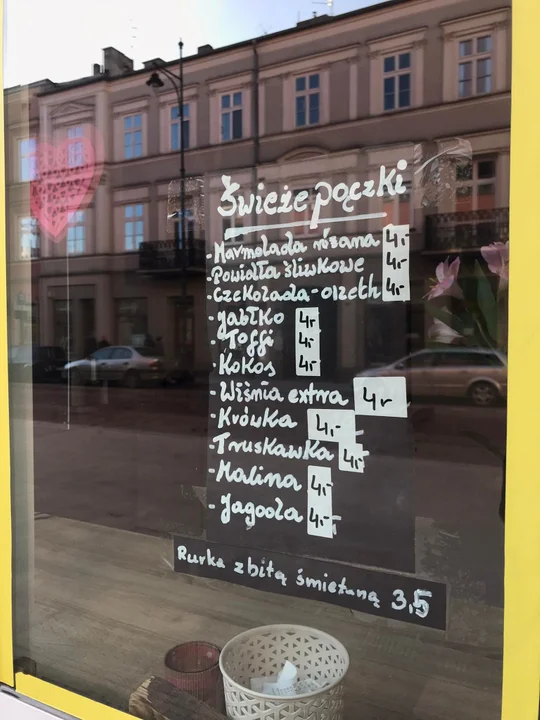 Świeże pączki
- Marmolada różana 4,-
- Powidła śliwkowe 4,-
- Czekolada-orzech 4,-
- Jabłko 4,-
- Toffi 4,-
- Kokos 4,-
- Wiśnia extra 4,-
- Krówka 4,-
- Truskawka 4,-
- Malina 4,-
- Jagoda 4,-
Rurka z bitą śmietaną 3,5